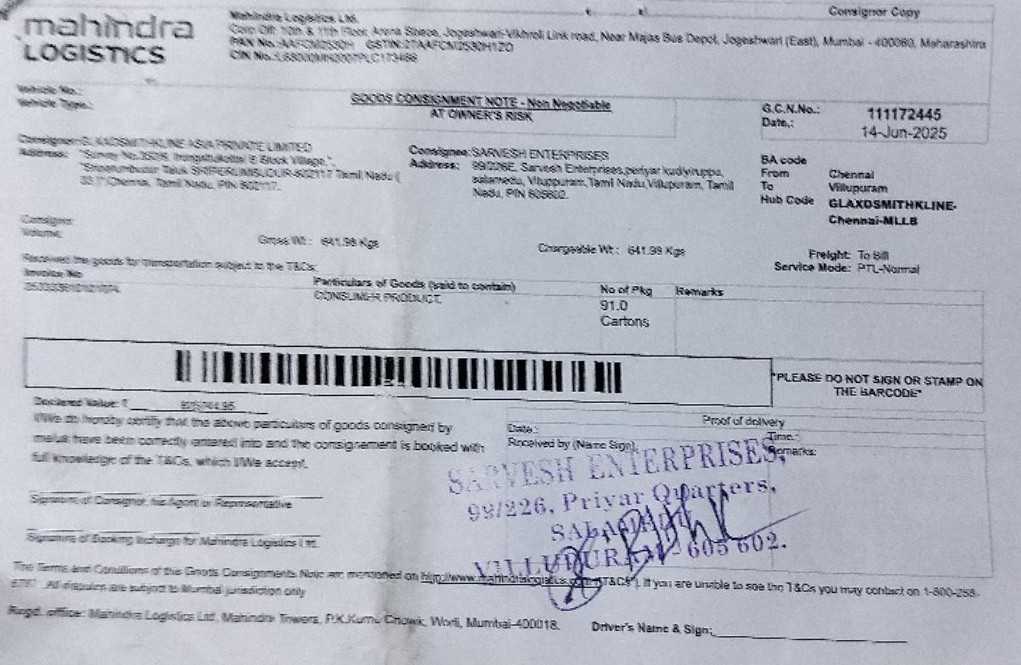 mahindra
LOGISTICS
Mahindra Logistics Ltd.
Consignor Copy
10th & 11th Floor, Arena Space, Jogeshwari-Vikhroli Link road, Near Majas Bus Depot, Jogeshwari (East), Mumbai - 400060, Maharashtra
PAN No.: GSTIN:
CIN No.:
Vehicle No.:
Vehicle Type.:
GOODS CONSIGNMENT NOTE - Non Negotiable
AT OWNER'S RISK
G.C.N.No.: 111172445
Date.: 14-Jun-2025
Consignor: ASIA PRIVATE LIMITED
Address:
Taluk SRIPERUMBUDUR-602117 Tamil Nadu (
Chennai, Tamil Nadu, PIN 602117.
Consignee: SARVESH ENTERPRISES
Address: 99/226E, Sarvesh Enterprises,periyar
Viluppuram,Tamil Nadu,Villupuram, Tamil
Nadu, PIN 605602.
BA code
From Chennai
To Villupuram
Hub Code GLAXOSMITHKLINE-
Chennai-MLLB
Consignor
Volume:
Gross Wt.: 641.98 Kgs
Chargeable Wt.: 641.98 Kgs
Freight: To Bill
Service Mode: PTL-Normal
Received the goods for transportation subject to the T&Cs.
Invoice No
Particulars of Goods (said to contain)
No of Pkg
Remarks
CONSUMER PRODUCT.
91.0
Cartons
"PLEASE DO NOT SIGN OR STAMP ON
THE BARCODE"
Declared Value: ₹
I/We do hereby certify that the above particulars of goods consigned by
me/us have been correctly entered into and the consignment is booked with
full knowledge of the T&Cs, which I/We accept.
Proof of delivery
Date.:
Time.:
Received by (Name Sign).
Remarks:
SARVESH ENTERPRISES,
99/226, Priyar Quarters,
VILLUPURAM - 605 602.
Signature of Consignor, his Agent or Representative
Signature of Booking Incharge for Mahindra Logistics Ltd.
The Terms and Conditions of this Goods Consignments Note are mentioned on http://www.mahindralogistics.com ("T&Cs"). If you are unable to see the T&Cs you may contact on 1-800-258-
All disputes are subject to Mumbai jurisdiction only
Regd. office: Mahindra Logistics Ltd, Mahindra Towers, P.K.Kurne Chowk, Worli, Mumbai-400018.
Driver's Name & Sign: